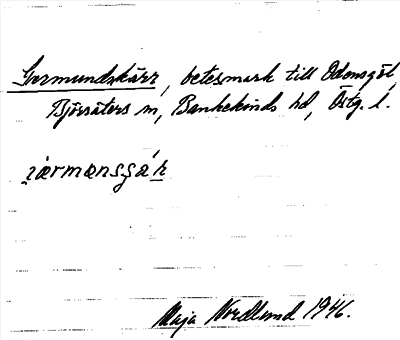 Germundskärr, betesmark till Odensgöl,
Björsäters sn, Bankekinds hd, Östg. l.
Maja Nordlund 1946.